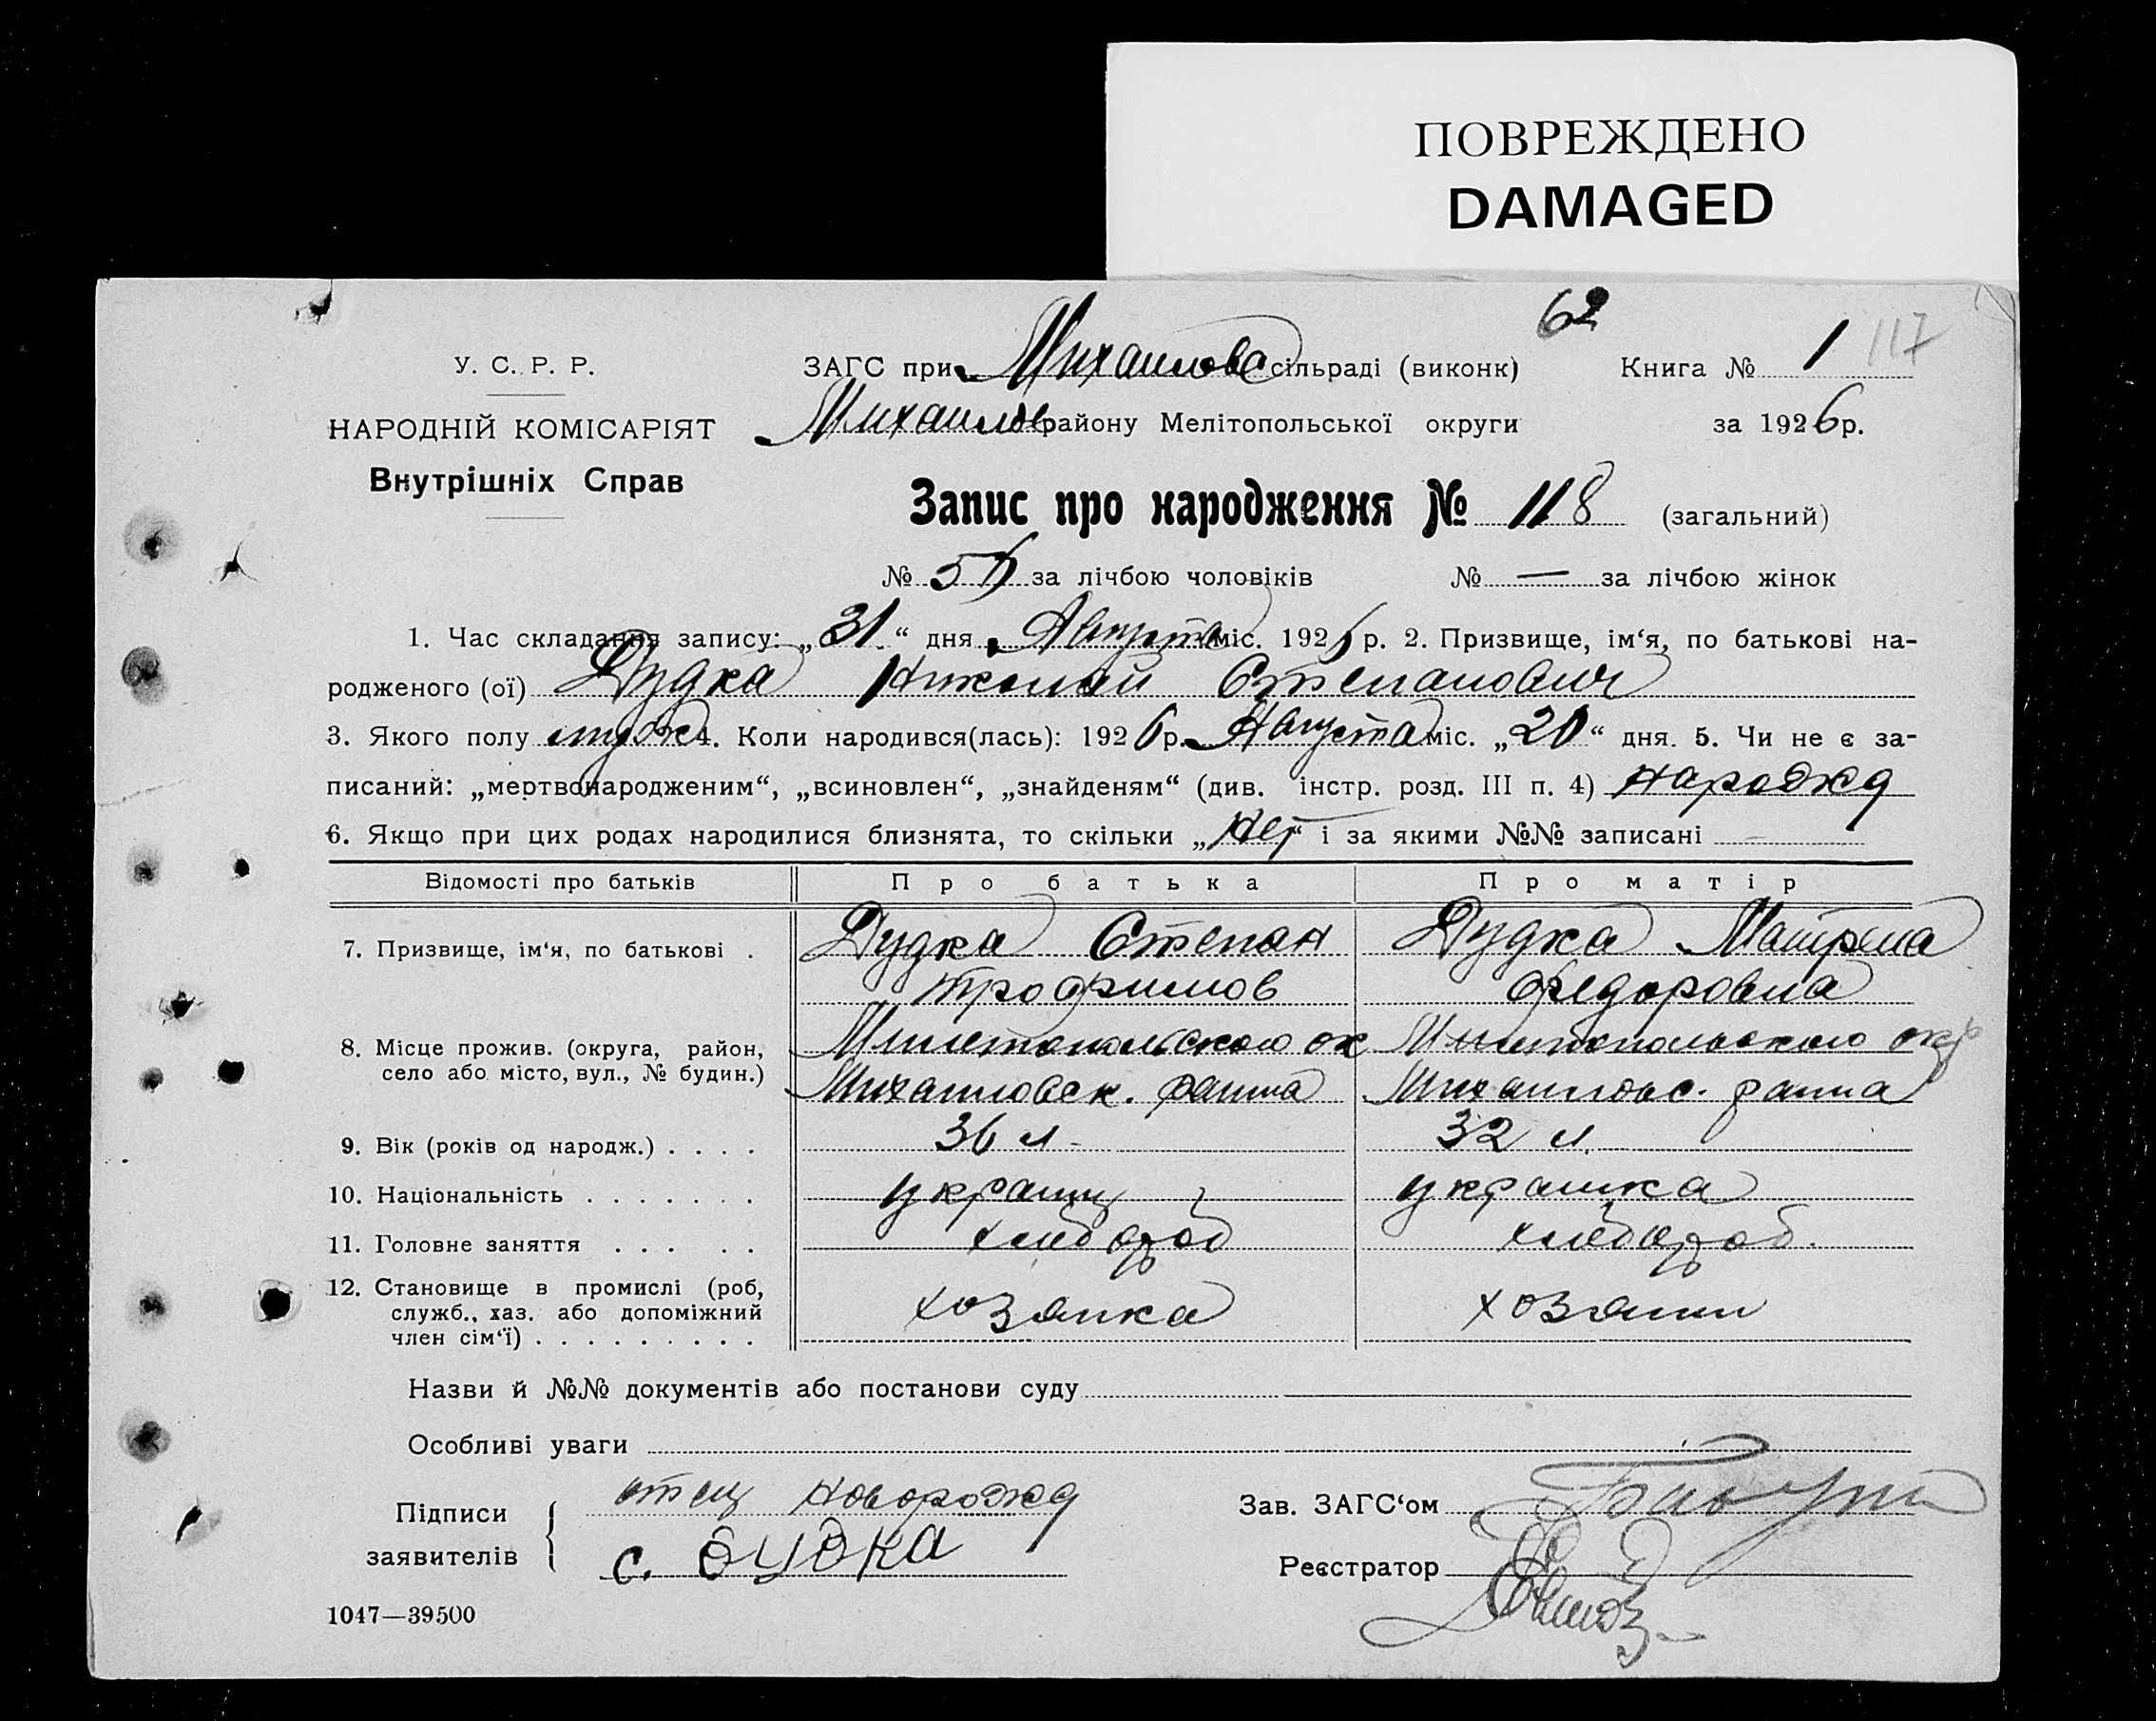 ПОВРЕЖДЕНО
DAMAGED
62
У. С. Р. Р.
ЗАГС при Михайлова сільраді (виконк) Книга № 1 117
НАРОДНІЙ КОМІСАРІЯТ
Михайлов району Мелітопольської округи за 1926 р.
Внутрішніх Справ
Запис про народження № 118 (загальний)
№ за лічбою чоловіків № — за лічбою жінок
1. Час складання запису: „31“ дня Августа міс. 1926 р. 2. Призвище, ім‘я, по батькові на-
родженого (ої) Дудка Николай Степанович
3. Якого полу муж 4. Коли народився(лась): 1926 р. Августа міс. „20“ дня. 5. Чи не є за-
писаний: „мертвонародженим“, „всиновлен“, „знайденям“ (див. інстр. розд. III п. 4) нарожд
6. Якщо при цих родах народилися близнята, то скільки „нет“ і за якими №№ записані
Відомості про батьків Про батька Про матір
7. Призвище, ім‘я, по батькові . Дудка Степан Дудка Матрена
Трофимов Федоровна
8. Місце прожив. (округа, район, Мелетопольского ок Мелитопольского окр
село або місто, вул., № будин.) Михайловск. района Михайловс. района
9. Вік (років од народж.) . . . . 36 л. 32 л.
10. Національність . . . . . . . украинц украинка
11. Головне заняття . . . . . хлебороб хлебороб.
12. Становище в промислі (роб,
служб., хаз. або допоміжний хозяика хозяин
член сім‘ї) . . . . . . . . .
Назви й №№ документів або постанови суду
Особливі уваги
Підписи отец новорожд Зав. ЗАГС‘ом
заявителів с. дудка Реєстратор
1047—39500